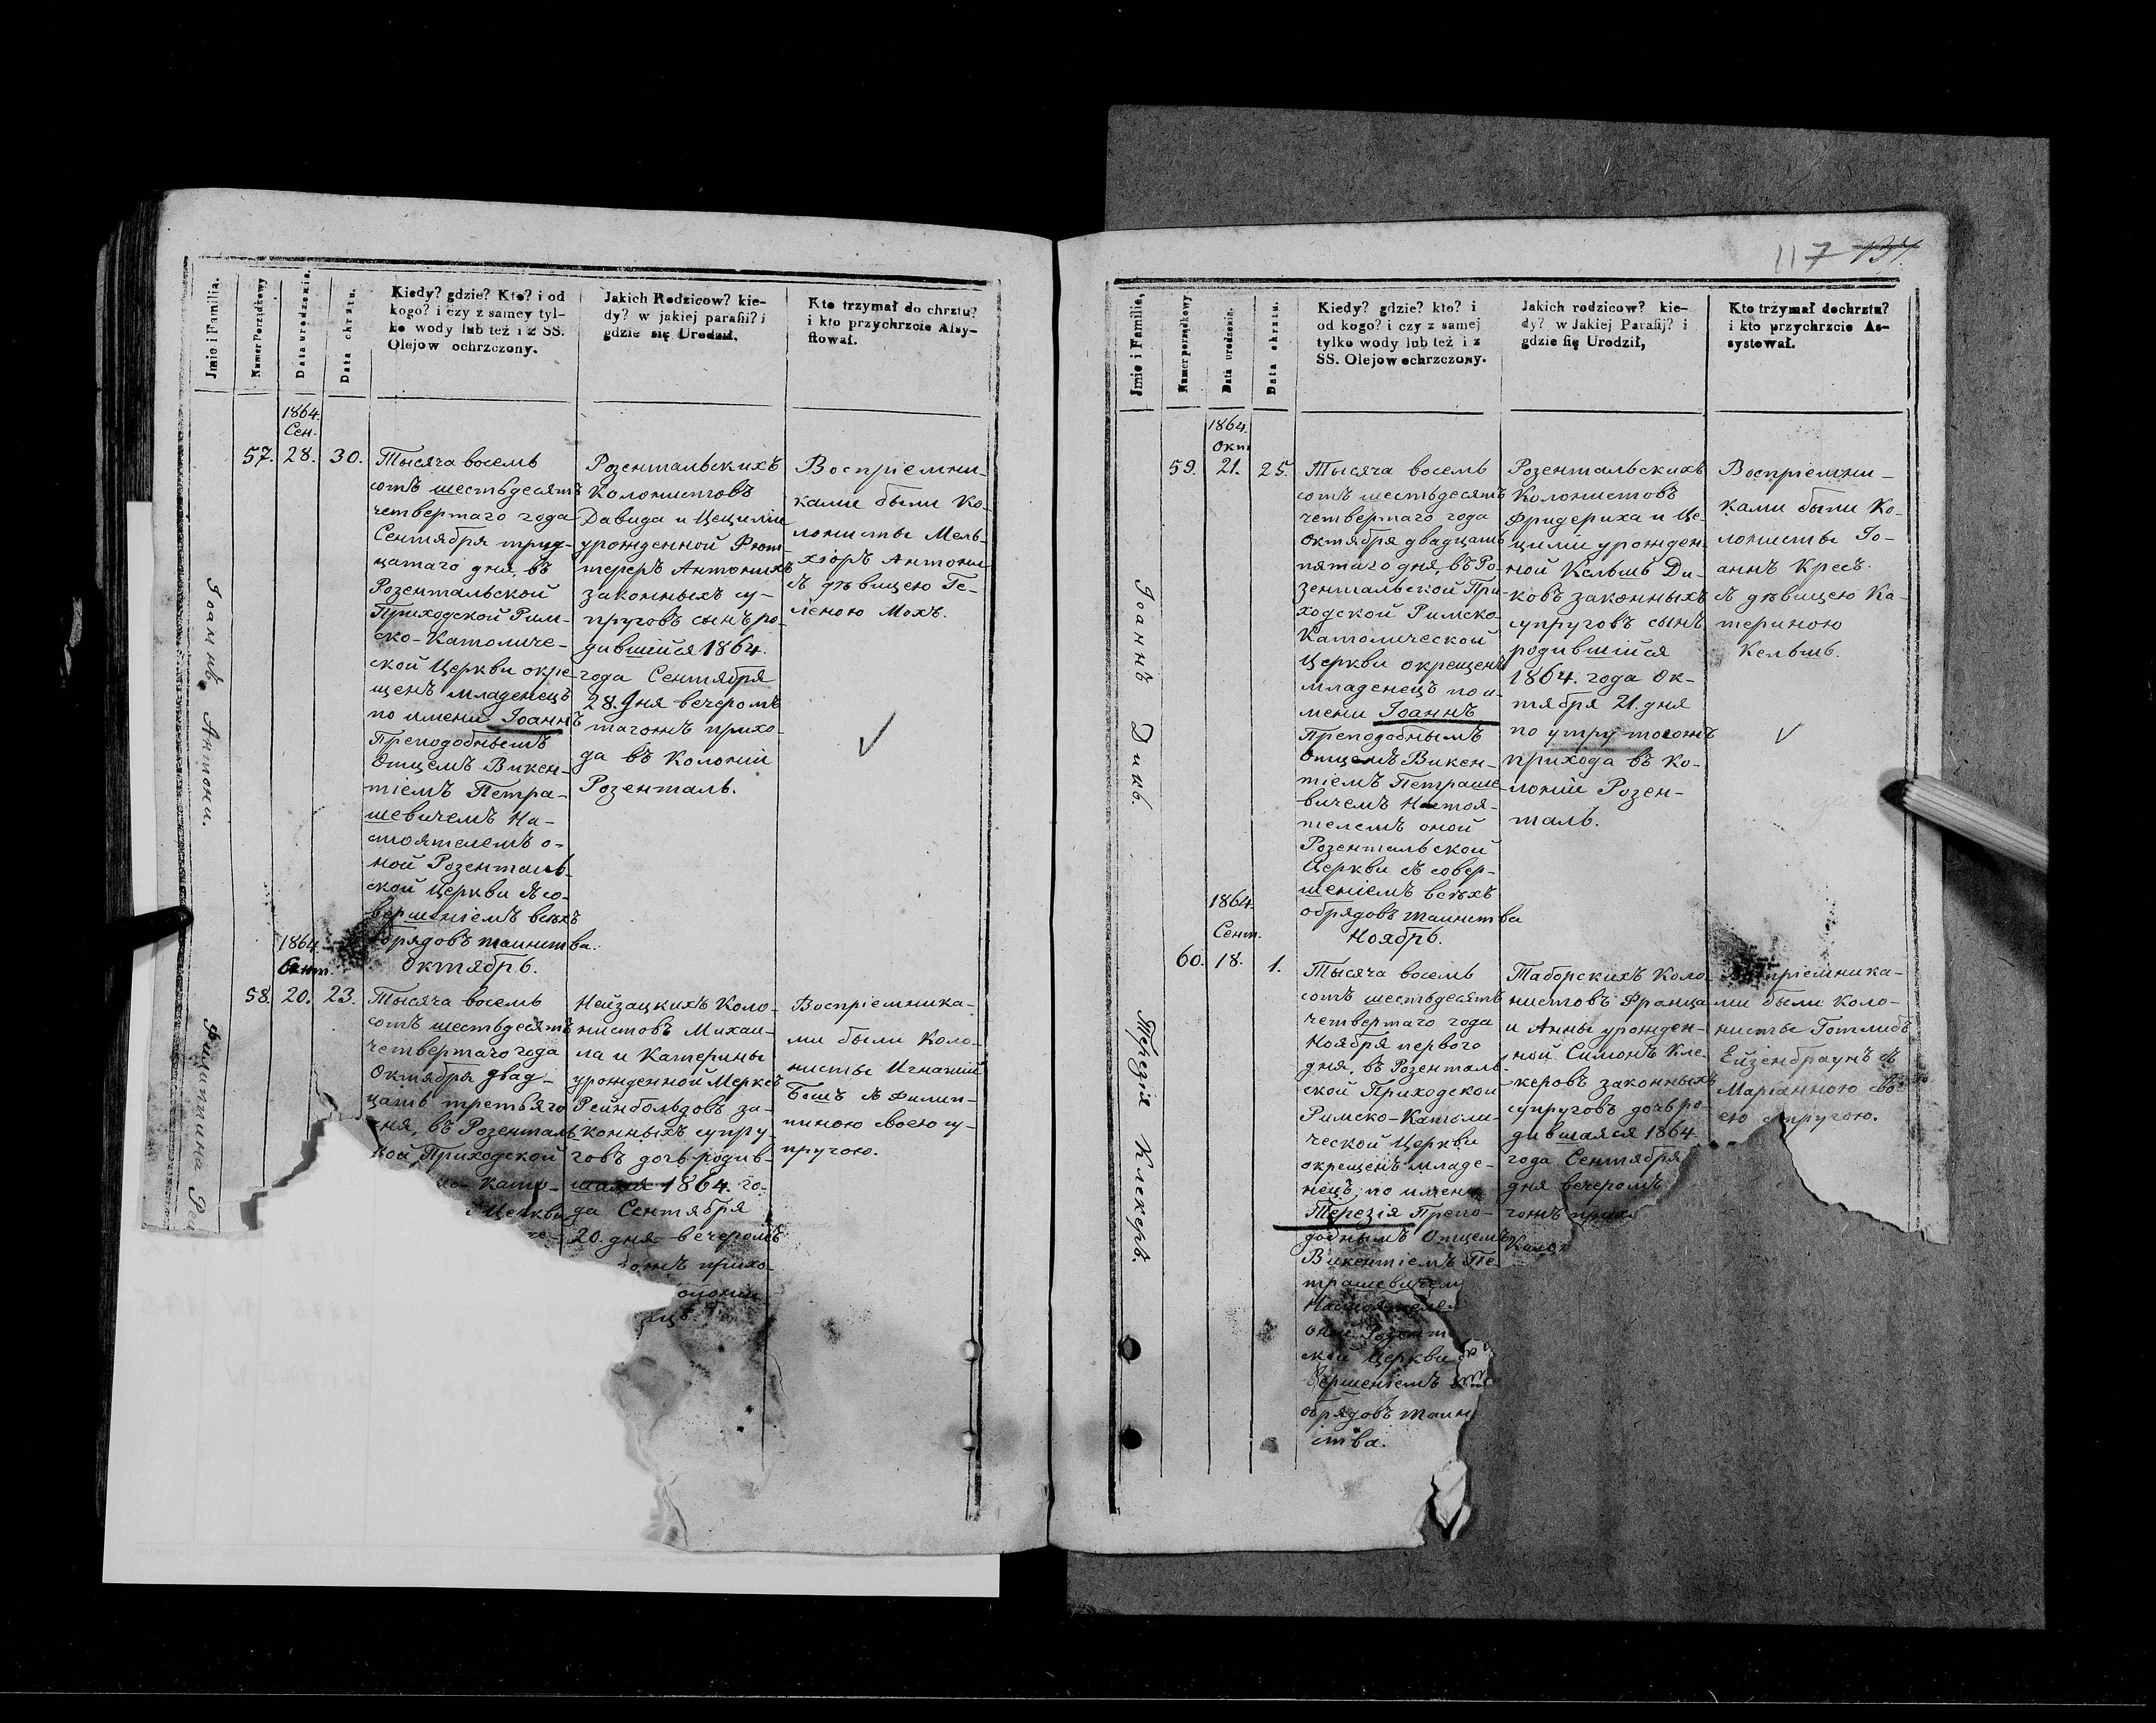 Jmie i Familia.
Numer Porządkowy
Data urodzenia.
Data chrztu.
Kiedy? gdzie? Kto? i od
kogo? i czy z samey tyl-
ko wody lub też i z SS.
Olejow ochrzczony.
Jakich Rodzicow? kie-
dy? w jakiej parafii? i
gdzie się Urodził.
Kto trzymał do chrztu?
i kto przychrzcie Assy-
stował.
Іоаннъ Антони.
1864.
Сен.
57. 28. 30.
Тысяча восемь
сотъ шестьдесятъ
четвертаго года
Сентября трид-
цатаго дня, въ
Розентальской
Приходской Рим-
ско-Католиче-
ской Церкви окре-
щенъ младенецъ
по имени Іоаннъ
Преподобнымъ
Отцемъ Викен-
тіемъ Петра-
шевичемъ На-
стоятелемъ о-
ной Розенталь-
ской Церкви съ со-
вершеніемъ всѣхъ
обрядовъ таинства.
Розентальскихъ
Колонистовъ
Давида и Цециліи
урожденной
Антонихъ
законныхъ су-
пруговъ сынъ ро-
дившійся 1864.
года Сентября
28. дня вечеромъ
тагожъ прихо-
да въ Колоніи
Розенталь.
Воспріемни-
ками были Ко-
лонисты Мель-
хіоръ Антони
съ дѣвицею Ге-
леною Мохъ.
Октябрь.
Филиппина Рей
1864
Сент.
58. 20. 23.
Тысяча восемь
сотъ шестьдесятъ
четвертаго года
Октября двад-
цать третьяго
дня, въ Розенталь-
кой Приходской
Като-
Церкви
Нейзацкихъ Коло-
нистовъ Михаи-
ла и Катерины
урожденной Меркеъ
Рейнбольдовъ за-
конныхъ супру-
говъ дочь родив-
шаяся 1864. го-
да Сентября
20. дня вечеромъ
ожъ прихо-
олоніи
ацъ.
Воспріемника-
ми были Коло-
нисты Игнатій
Бешъ съ Филип-
пиною своею су-
пругою.
117
Jmie i Familie,
Numer porządkowy
Data urodzenia.
Data chrztu.
Kiedy? gdzie? kto? i
od kogo? i czy z samej
tylko wody lub też i z
SS. Olejow ochrzczony.
Jakich rodzicow? kie-
dy? w Jakiej Parafij? i
gdzie się Urodził,
Kto trzymał dochrztu?
i kto przychrzcie As-
systował.
Іоаннъ Дикъ.
1864.
Окт
59. 21. 25.
Тысяча восемь
сотъ шестьдесятъ
четвертаго года
Октября двадцать
пятаго дня, въ Ро-
зентальской При-
ходской Римско-
Католической
Церкви окрещенъ
младенецъ по и-
мени Іоаннъ
Преподобнымъ
Отцемъ Викен-
тіемъ Петраше-
вичемъ Настоя-
телемъ оной
Розентальской
Церкви съ совер-
шеніемъ всѣхъ
обрядовъ таинства
Розентальскихъ
Колонистовъ
Фридериха и Це-
циліи урожден-
ной Кельшъ Ди-
ковъ законныхъ
супруговъ сынъ
родившійся
1864. года Ок-
тября 21. дня
по утру тогожъ
прихода въ Ко-
лоніи Розен-
таль.
Воспріемни-
ками были Ко-
лонисты Іо-
аннъ Кресъ
съ дѣвицею Ка-
териною
Кельшъ.
Ноябрь.
Терезія Клекеръ.
1864.
Сент.
60. 18. 1.
Тысяча восемь
сотъ шестьдесятъ
четвертаго года
Ноября перваго
дня, въ Розенталь-
ской Приходской
Римско-Католи-
ческой Церкви
окрещенъ младе-
нецъ, по имени
Терезія Препо-
добнымъ Отцемъ
Викентіемъ Пе-
трашевичем
Настоятеле
оной Розент
ской Церкви
вершеніемъ
обрядовъ таин
ства.
Таборскихъ Коло-
нистовъ Франца
и Анны урожден-
ной Симонъ Кле-
керовъ законныхъ
супруговъ дочь ро-
дившаяся 1864.
года Сентября
дня вечеромъ
гожъ прих
Колон
Воспріемника-
ми были Коло-
нисты Готлибъ
Ейзенбраунъ съ
Маріанною сво-
ею супругою.